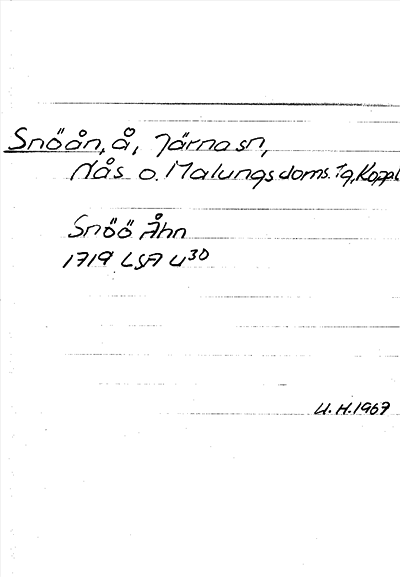 Snöån, å, Järna sn,
Nås o. Malungs doms. tg, Koppl
Snöö Åhn
1719 LSA U30
U.H.1967